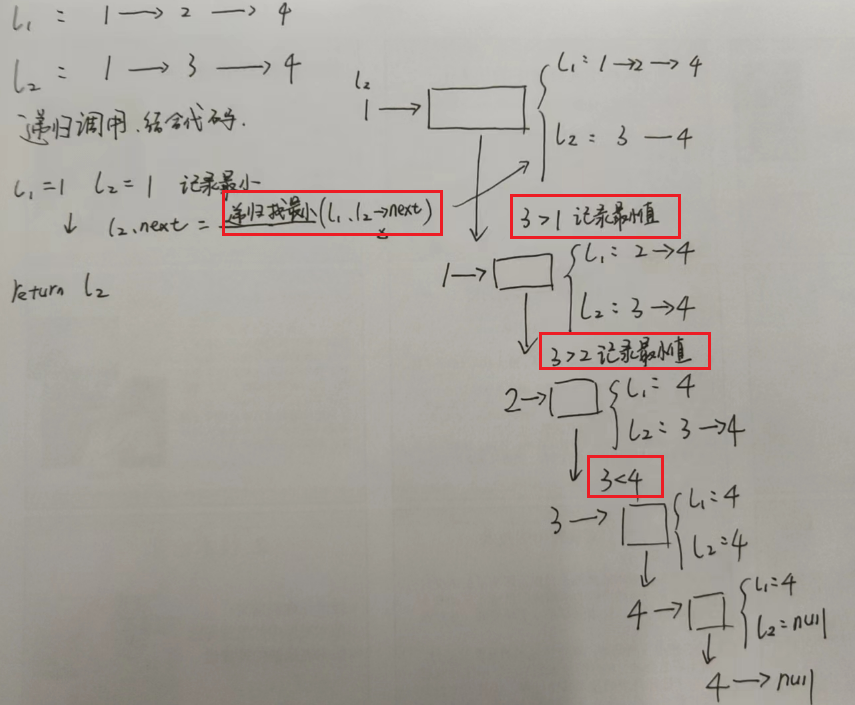 l₁ = 1 → 2 → 4
l₂ = 1 → 3 → 4
递归调用、结合代码.
l₁=1 l₂=1 记录最小
↓ l₂.next = 递归找最小(l₁、l₂→next)
return l₂
l₂
1 →
l₁: 1→2→4
l₂ = 3 — 4
3 > 1 记录最小值
1 →
l₁: 2→4
l₂: 3→4
3 > 2 记录最小值
2 →
l₁= 4
l₂= 3→4
3<4
3 →
l₁=4
l₂=4
4 →
l₁=4
l₂=null
4 → null